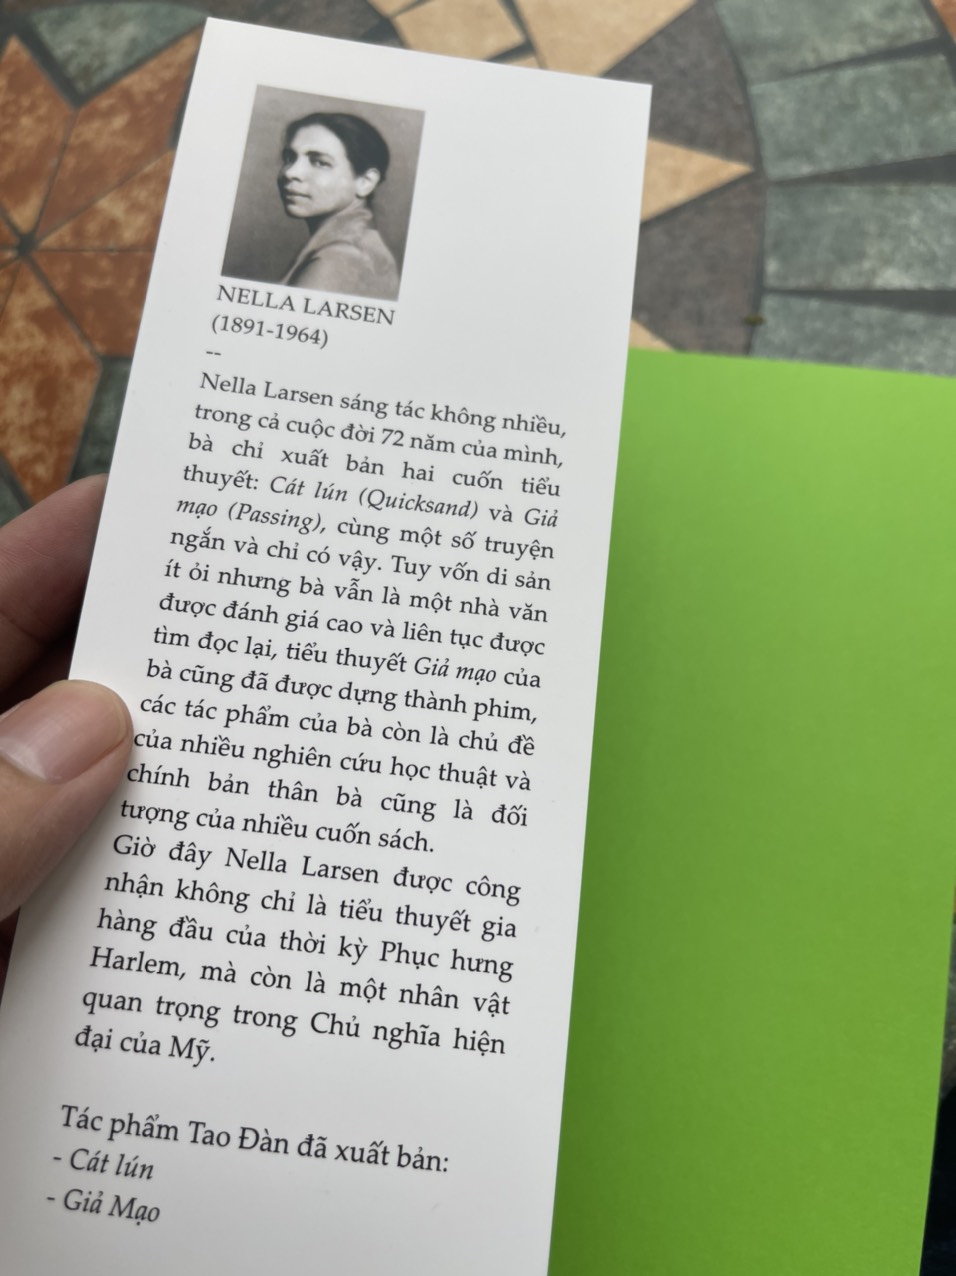 NELLA LARSEN
(1891-1964)
--
Nella Larsen sáng tác không nhiều,
trong cả cuộc đời 72 năm của mình,
bà chỉ xuất bản hai cuốn tiểu
thuyết: Cát lún (Quicksand) và Giả
mạo (Passing), cùng một số truyện
ngắn và chỉ có vậy. Tuy vốn di sản
ít ỏi nhưng bà vẫn là một nhà văn
được đánh giá cao và liên tục được
tìm đọc lại, tiểu thuyết Giả mạo của
bà cũng đã được dựng thành phim,
các tác phẩm của bà còn là chủ đề
của nhiều nghiên cứu học thuật và
chính bản thân bà cũng là đối
tượng của nhiều cuốn sách.
Giờ đây Nella Larsen được công
nhận không chỉ là tiểu thuyết gia
hàng đầu của thời kỳ Phục hưng
Harlem, mà còn là một nhân vật
quan trọng trong Chủ nghĩa hiện
đại của Mỹ.
Tác phẩm Tao Đàn đã xuất bản:
- Cát lún
- Giả Mạo